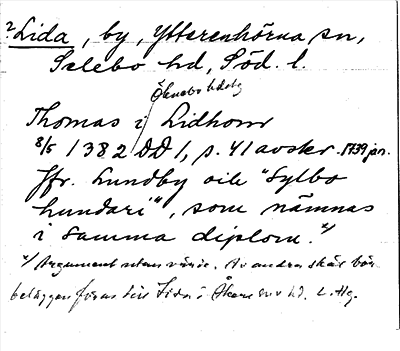 ? Lida, by, Ytterenhörna sn,
Selebo hd, Söd. l.
Öknebo hdsby
Thomas i Lidhom
8/5 1382 DD 1, s. 41 avskr. 1739 jan.
Jfr. Lundby och "Sylbo
hundari", som nämnas
i samma diplom. x/
x/ Argument utan värde. Av andra skäl bör
beläggen föras till Lida i Åkers sn o hd. L. Hg.